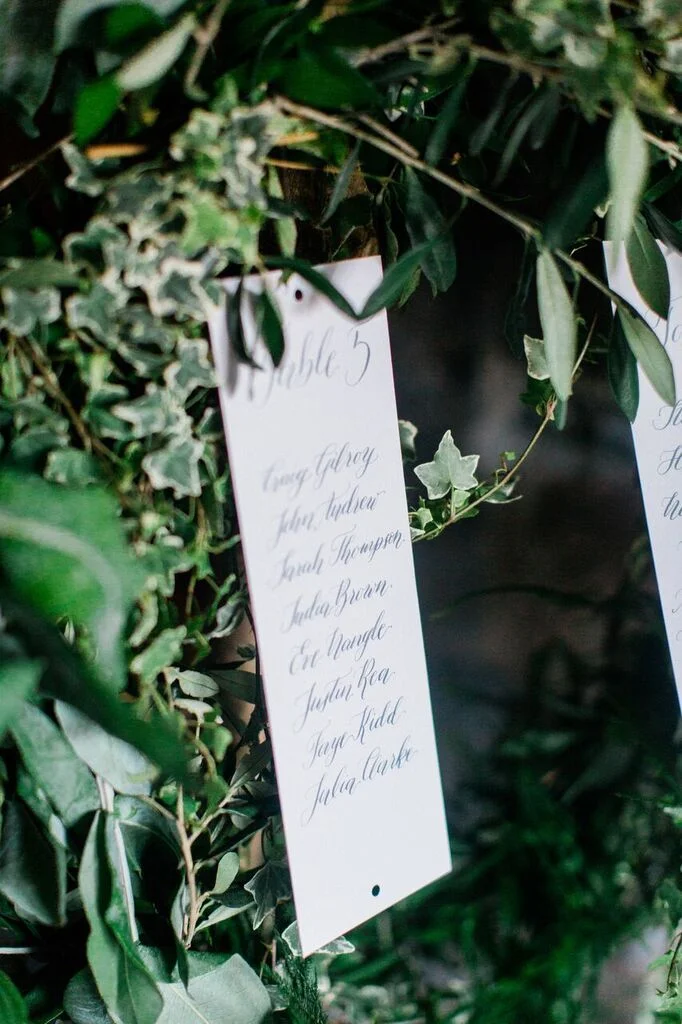 Table 5
Craig Gilroy
John Andrew
Sarah Thompson
Jadea Brown
Eve Nangle
Justin Rea
Faye Kidd
Julia Clarke